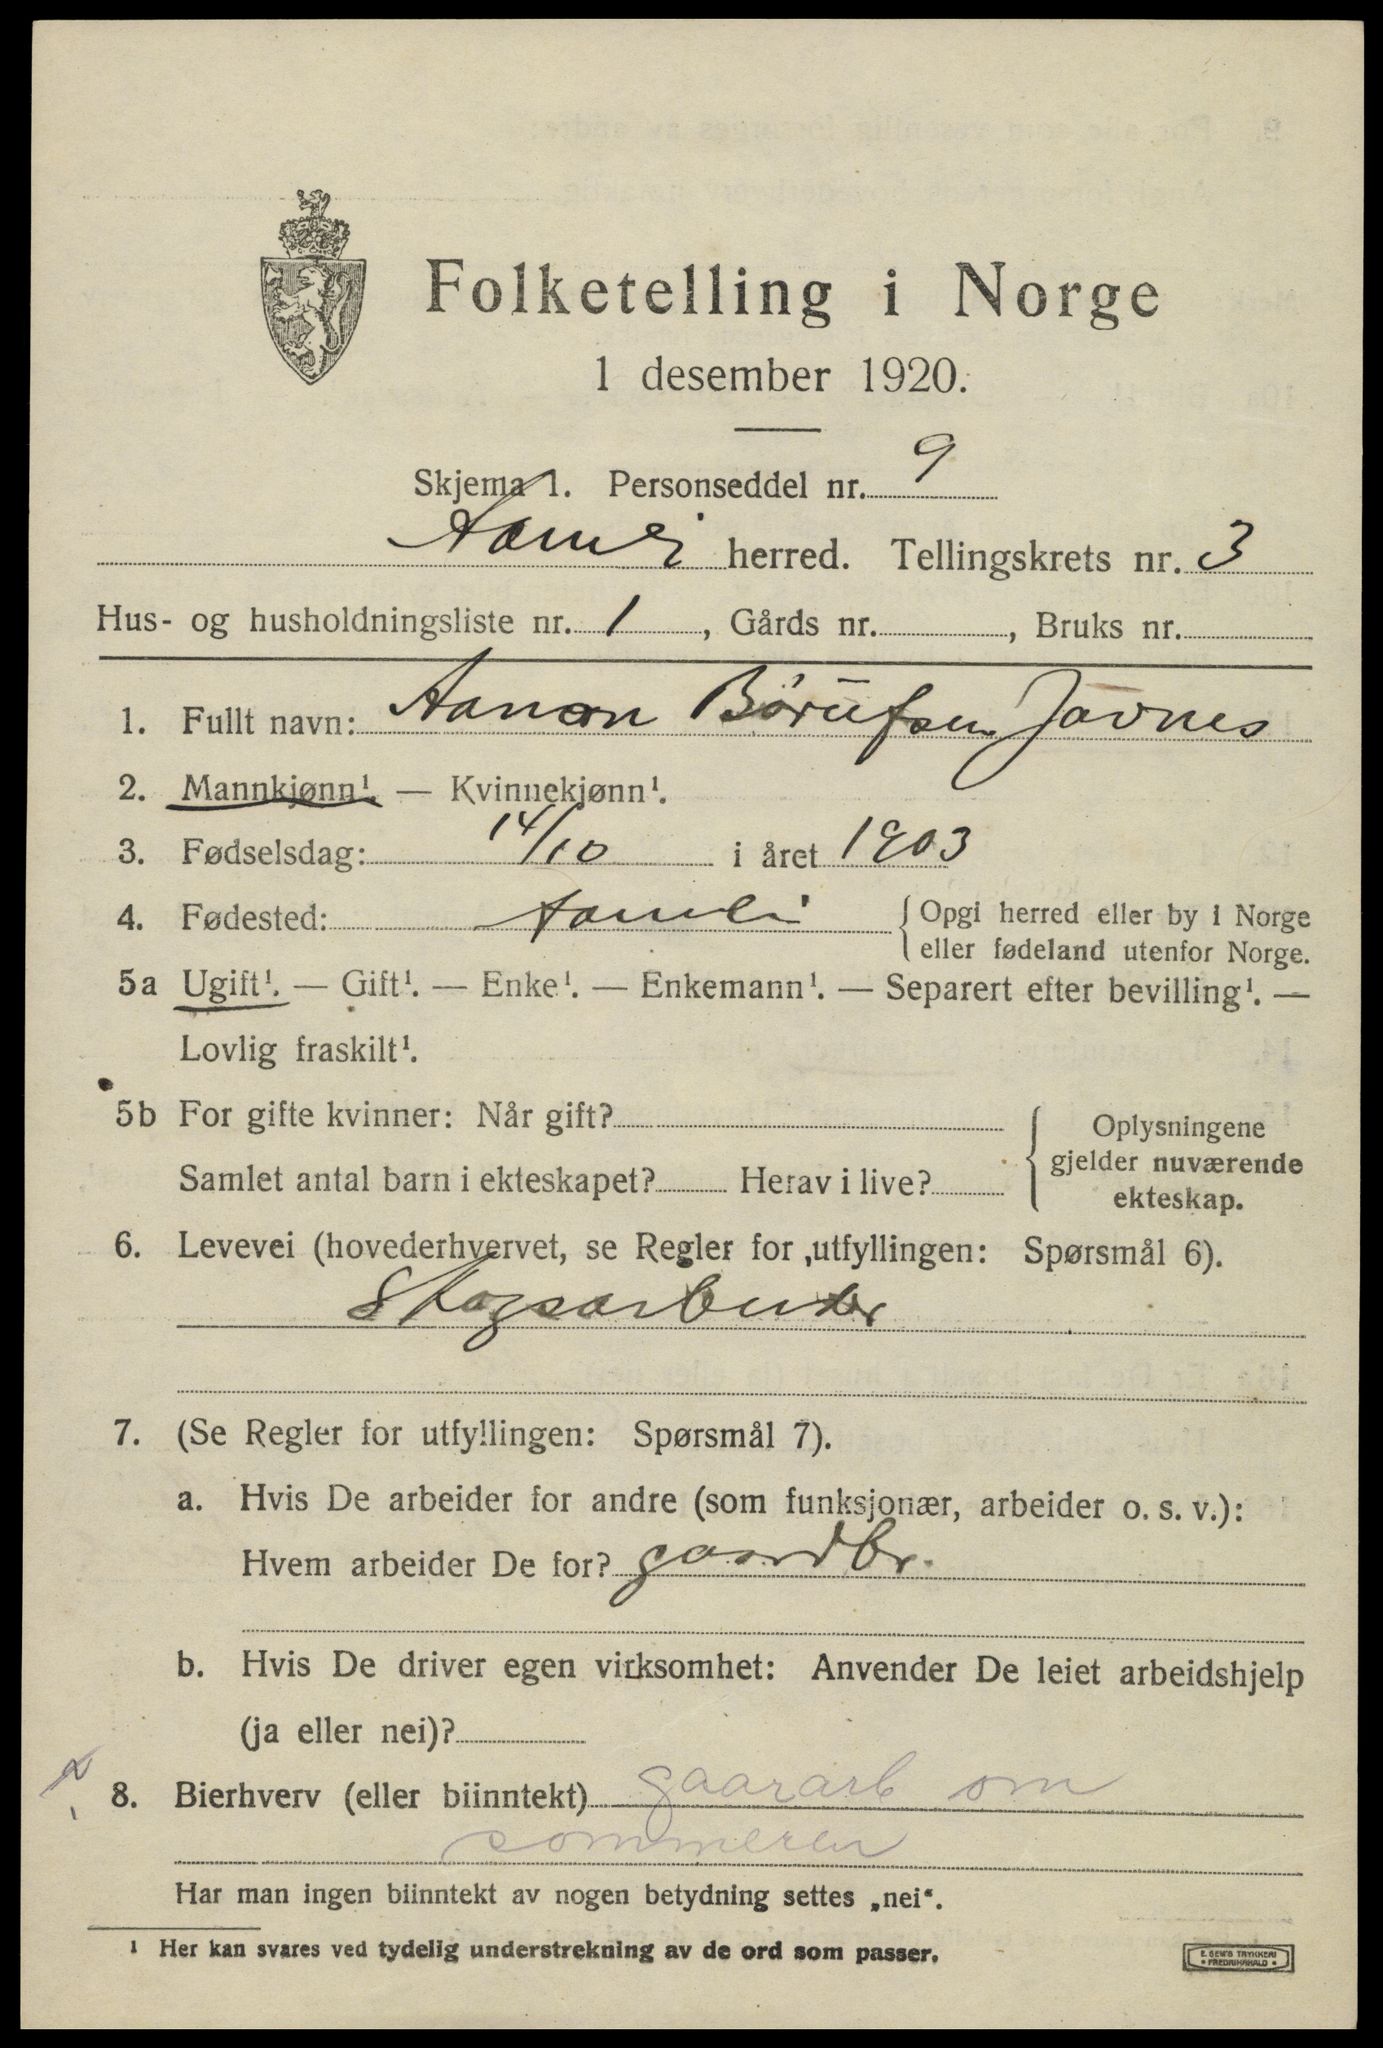 Folketelling i Norge
1 desember 1920.
Skjema 1. Personseddel nr. 9
Aamli herred. Tellingskrets nr. 3
Hus- og husholdningsliste nr. 1, Gårds nr. , Bruks nr.
1. Fullt navn: Aanon Børufsen Jovnes
2. Mannkjønn¹. — Kvinnekjønn¹.
3. Fødselsdag: 14/10 i året 1903
4. Fødested: Aamli { Opgi herred eller by i Norge
eller fødeland utenfor Norge.
5a Ugift¹. — Gift¹. — Enke¹. — Enkemann¹. — Separert efter bevilling¹. —
Lovlig fraskilt¹.
5b For gifte kvinner: Når gift?
Samlet antal barn i ekteskapet? Herav i live?
{ Oplysningene
gjelder nuværende
ekteskap.
6. Levevei (hovederhvervet, se Regler for utfyllingen: Spørsmål 6).
Skogsarbeider
7. (Se Regler for utfyllingen: Spørsmål 7).
a. Hvis De arbeider for andre (som funksjonær, arbeider o. s. v.):
Hvem arbeider De for? gaardbr.
b. Hvis De driver egen virksomhet: Anvender De leiet arbeidshjelp
(ja eller nei)?
8. Bierhverv (eller biinntekt) gaararb om
sommeren
Har man ingen biinntekt av nogen betydning settes „nei“.
¹ Her kan svares ved tydelig understrekning av de ord som passer.
E. SEM'S TRYKKERI
• FREDRIKSHALD •